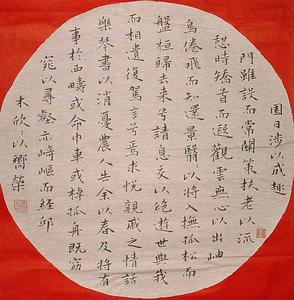 園日涉以成趣
門雖設而常關策扶老以流
憩時矯首而遐觀雲無心以出岫
鳥倦飛而知還景翳以將入撫孤松而
盤桓歸去来兮請息交以絶遊世與我
而相遺復駕言兮焉求悅親戚之情話
樂琴書以消憂農人告余以春及將有
事於西疇或命巾車或棹孤舟既窈
窕以尋壑亦崎嶇而經邱
木欣〻以嚮榮